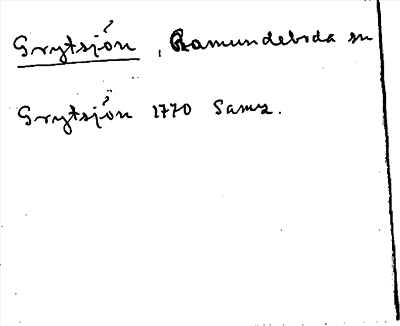 Grytsjón, Ramundeboda sn
Grytsjón 1770 Samz.